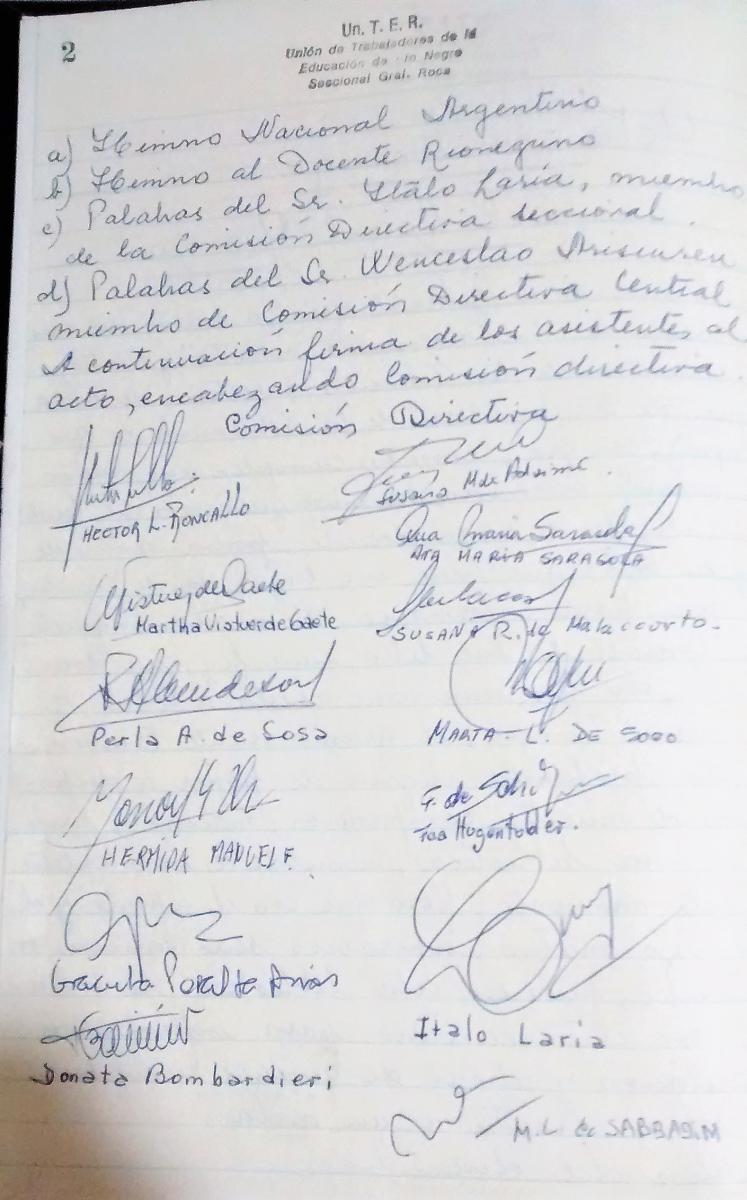 2
Un. T. E. R.
Unión de Trabajadores de la
Educación de Río Negro
Seccional Gral. Roca
a) Himno Nacional Argentino
b) Himno al Docente Rionegrino
c) Palabras del Sr. Italo Laria, miembro
de la Comisión Directiva seccional.
d) Palabras del Sr. Wenceslao
miembro de Comisión Directiva Central
A continuación firma de los asistentes al
acto, encabezando Comisión directiva.
Comisión Directiva
HECTOR L. RONCALLO
Susana M. de
Ana Maria Saragosa
ANA MARIA SARAGOSA
Martha Vistuer de Gaete
SUSANA R. de Malaccorto.
Perla A de Sosa
MARTA L. DE
HERMIDA MANUEL F.
Graciela Peralta Arias
Italo Laria
Donata Bombardieri
M. L. de